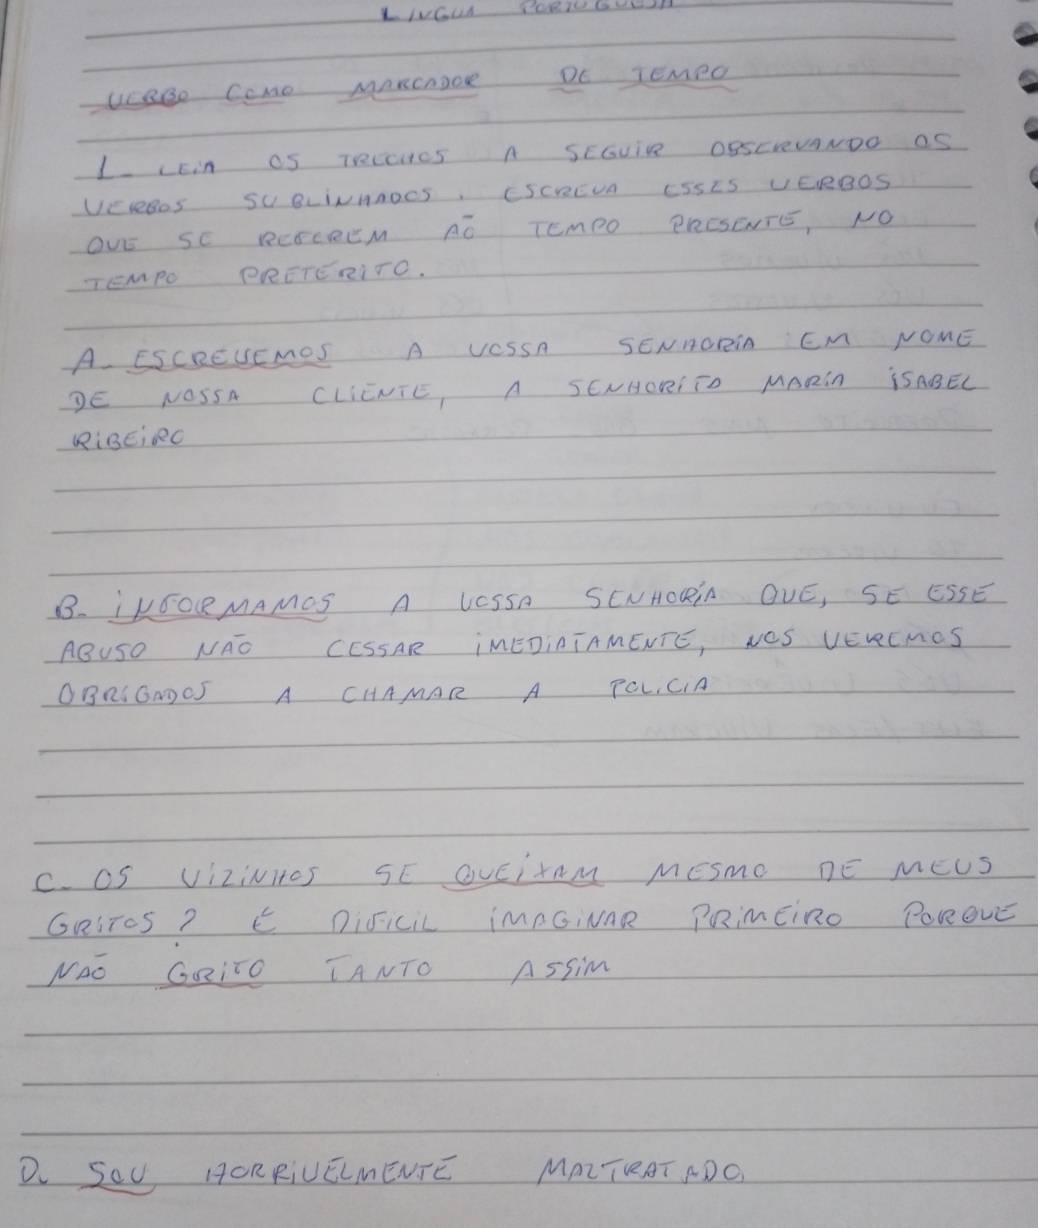 LINGUA PORTUGUESA
VERBO COMO MARCADOR DE TEMPO
1- LEIA OS TRECHOS A SEGUIR OBSERVANDO OS
VERBOS SUBLINHADOS. ESCREVA ESSES VERBOS
QUE SE REFEREM AO TEMPO PRESENTE, NO
TEMPO PRETÉRITO.
A- ESCREVEMOS A VOSSA SENHORIA EM NOME
DE NOSSA CLIENTE, A SENHORITA MARIA ISABEL
RIBEIRO
B- INFORMAMOS A VOSSA SENHORIA QUE, SE ESSE
ABUSO NÃO CESSAR IMEDIATAMENTE, NOS VEREMOS
OBRIGADOS A CHAMAR A POLICIA
C- OS VIZINHOS SE QUEIXAM MESMO DE MEUS
GRITOS? É DIFICIL IMAGINAR PRIMEIRO PORQUE
NÃO GRITO TANTO ASSIM
D. SOU HORRIVELMENTE MALTRATADO,